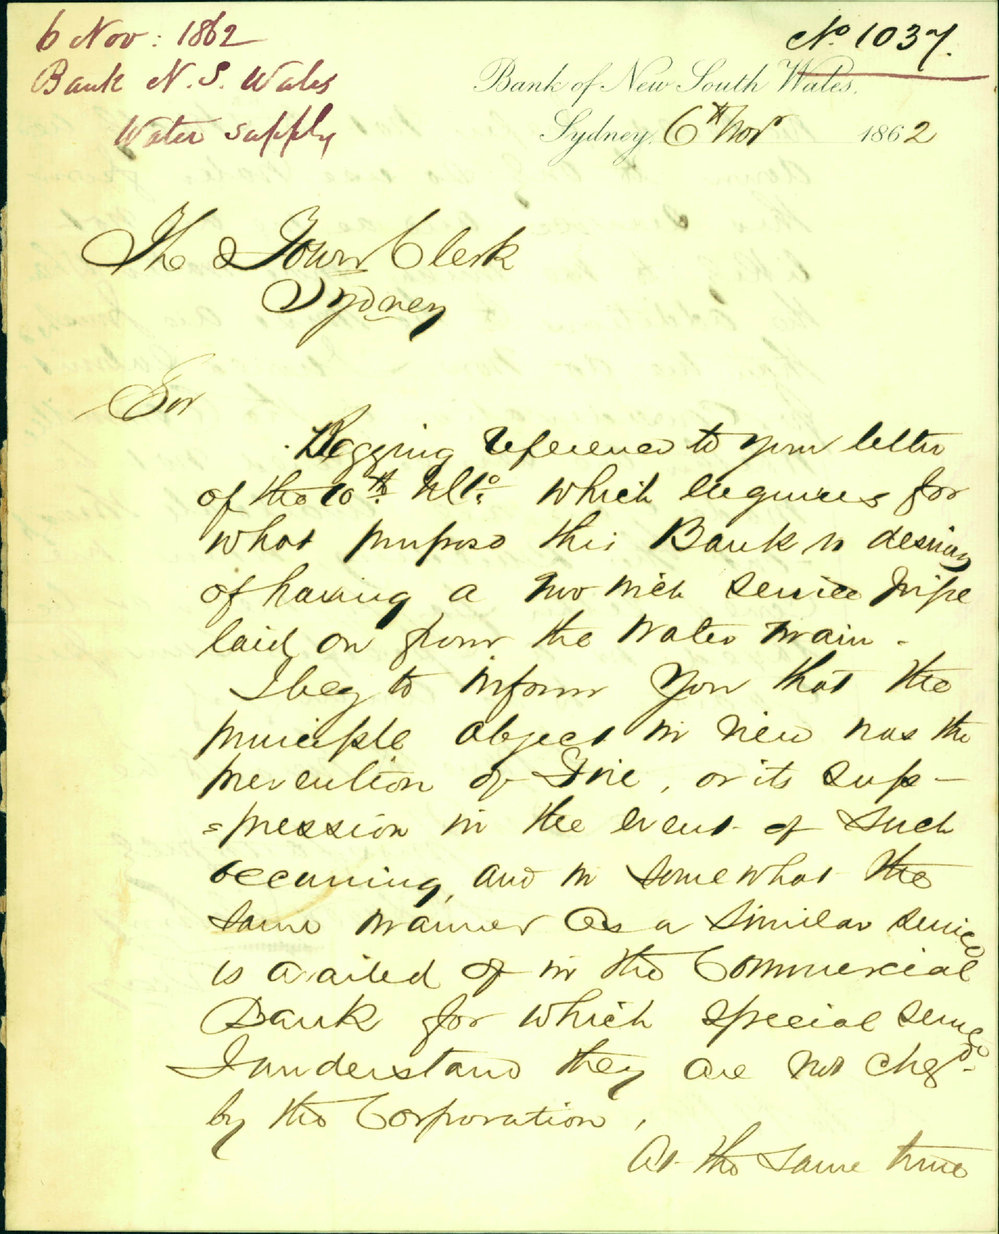 6 Nov: 1862
Bank N. S. Wales
Water supply
No. 1037.
Bank of New South Wales,
Sydney, 6th Novr 1862
The Town Clerk
Sydney
Sir
Begging reference to your letter
of the 10th Ulto. which enquires for
what purpose this Bank is desirous
of having a two inch service pipe
laid on from the Water Main.
I beg to inform you that the
principle object in view was the
prevention of Fire, or its sup-
=pression in the event of such
occurring, and in somewhat the
same manner as a similar service
is availed of in the Commercial
Bank for which special service
I understand they are not chgd.
by the Corporation,
At the same time